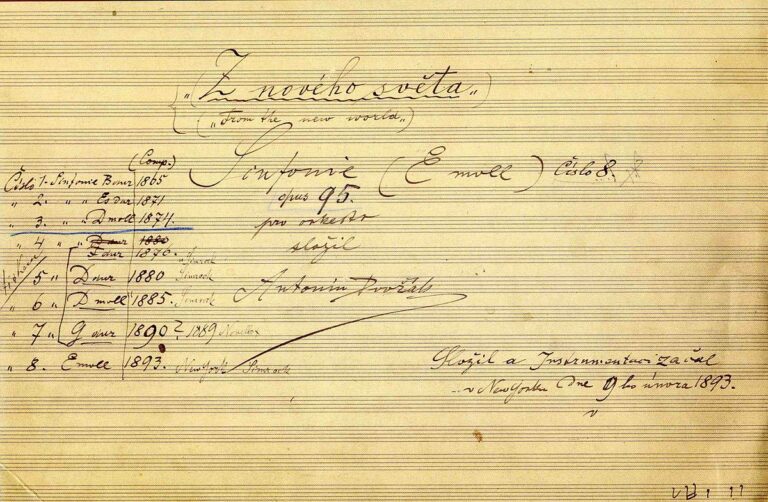 „Z nového světa„
(„From the new world„)
(Comp.)
Sinfonie (E moll) Číslo 8.
opus 95.
pro orkestr
složil
Antonín Dvořák
Číslo 1. Sinfonie B dur 1865
„ 2. „ „ Es dur 1871
„ 3. „ „ D moll 1874.
„ 4 „ „ D dur 1880
F dur 1876. Simrock
„ 5 „ D dur 1880 Simrock
„ 6 „ D moll 1885. Simrock
„ 7 „ G dur 1890? 1889 Novello
„ 8. E moll 1893. New York Simrock
Složil a Instrumentaci začal
v New Yorku Dne 9ho února 1893.